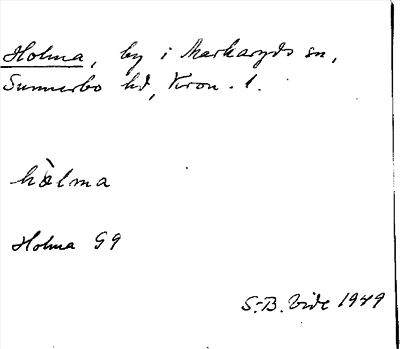 Holma, by i Markaryds sn,
Sunnerbo hd, Kron. l.
hòlma
Holma G9
S.-B. Vide 1949